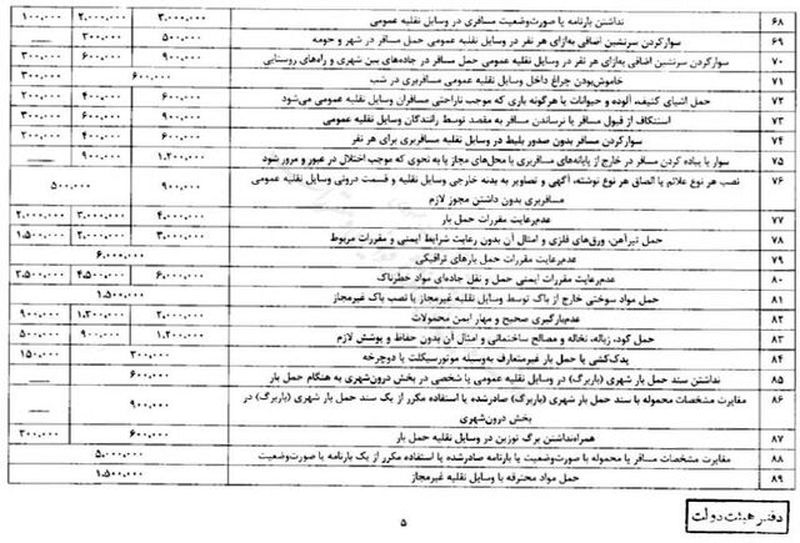 ۶۸ نداشتن بارنامه یا صورت‌وضعیت مسافری در وسایل نقلیه عمومی ۳.۰۰۰.۰۰۰ ۲.۰۰۰.۰۰۰ ۱۰۰.۰۰۰
۶۹ سوارکردن سرنشین اضافی به‌ازای هر نفر در وسایل نقلیه عمومی حمل مسافر در شهر و حومه ۵۰۰.۰۰۰ ۳۰۰.۰۰۰ ــــ
۷۰ سوارکردن سرنشین اضافی به‌ازای هر نفر در وسایل نقلیه عمومی حمل مسافر در جاده‌های بین شهری و راه‌های روستایی ۹۰۰.۰۰۰ ۶۰۰.۰۰۰ ۳۰۰.۰۰۰
۷۱ خاموش‌بودن چراغ داخل وسایل نقلیه عمومی مسافربری در شب ۶۰۰.۰۰۰ ۳۰۰.۰۰۰
۷۲ حمل اشیای کثیف، آلوده و حیوانات یا هرگونه باری که موجب ناراحتی مسافران وسایل نقلیه عمومی می‌شود ۶۰۰.۰۰۰ ۴۰۰.۰۰۰ ۲۰۰.۰۰۰
۷۳ استنکاف از قبول مسافر یا نرساندن مسافر به مقصد توسط رانندگان وسایل نقلیه عمومی ۹۰۰.۰۰۰ ۶۰۰.۰۰۰ ۳۰۰.۰۰۰
۷۴ سوارکردن مسافر بدون صدور بلیط در وسایل نقلیه مسافربری برای هر نفر ۶۰۰.۰۰۰ ۴۰۰.۰۰۰ ۲۰۰.۰۰۰
۷۵ سوار یا پیاده کردن مسافر در خارج از پایانه‌های مسافربری یا محل‌های مجاز یا به نحوی که موجب اختلال در عبور و مرور شود ۱.۲۰۰.۰۰۰ ۹۰۰.۰۰۰ ــــ
۷۶ نصب هر نوع علائم یا الصاق هر نوع نوشته، آگهی و تصاویر به بدنه خارجی وسایل نقلیه و قسمت درونی وسایل نقلیه عمومی ۹۰۰.۰۰۰ ۵۰۰.۰۰۰
مسافربری بدون داشتن مجوز لازم
۷۷ عدم‌رعایت مقررات حمل بار ۴.۰۰۰.۰۰۰ ۳.۰۰۰.۰۰۰ ۲.۰۰۰.۰۰۰
۷۸ حمل تیرآهن، ورق‌های فلزی و امثال آن بدون رعایت شرایط ایمنی و مقررات مربوط ۳.۰۰۰.۰۰۰ ۲.۰۰۰.۰۰۰ ۱.۵۰۰.۰۰۰
۷۹ عدم‌رعایت مقررات حمل بارهای ترافیکی ۶.۰۰۰.۰۰۰
۸۰ عدم‌رعایت مقررات ایمنی حمل و نقل جاده‌ای مواد خطرناک ۶.۰۰۰.۰۰۰ ۴.۵۰۰.۰۰۰ ۲.۵۰۰.۰۰۰
۸۱ حمل مواد سوختی خارج از باک توسط وسایل نقلیه غیرمجاز یا نصب باک غیرمجاز ۱.۵۰۰.۰۰۰
۸۲ عدم‌بارگیری صحیح و مهار ایمن محمولات ۲.۰۰۰.۰۰۰ ۱.۲۰۰.۰۰۰ ۹۰۰.۰۰۰
۸۳ حمل کود، زباله، نخاله و مصالح ساختمانی و امثال آن بدون حفاظ و پوشش لازم ۱.۲۰۰.۰۰۰ ۹۰۰.۰۰۰ ۵۰۰.۰۰۰
۸۴ یدک‌کشی یا حمل بار غیرمتعارف به‌وسیله موتورسیکلت یا دوچرخه ۲۰۰.۰۰۰ ۱۵۰.۰۰۰
۸۵ نداشتن سند حمل بار شهری (باربرگ) در وسایل نقلیه عمومی یا شخصی در بخش درون‌شهری به هنگام حمل بار ۶۰۰.۰۰۰ ــــ
۸۶ مغایرت مشخصات محموله با سند حمل بار شهری (باربرگ) صادرشده یا استفاده مکرر از یک سند حمل بار شهری (باربرگ) در ۹۰۰.۰۰۰ ــــ
بخش درون‌شهری
۸۷ همراه‌نداشتن برگ توزین در وسایل نقلیه حمل بار ۶۰۰.۰۰۰ ۳۰۰.۰۰۰
۸۸ مغایرت مشخصات مسافر یا محموله با صورت‌وضعیت یا بارنامه صادرشده یا استفاده مکرر از یک بارنامه یا صورت‌وضعیت ۵.۰۰۰.۰۰۰
۸۹ حمل مواد محترقه با وسایل نقلیه غیرمجاز ۱.۵۰۰.۰۰۰
دفتر هیئت دولت
۵